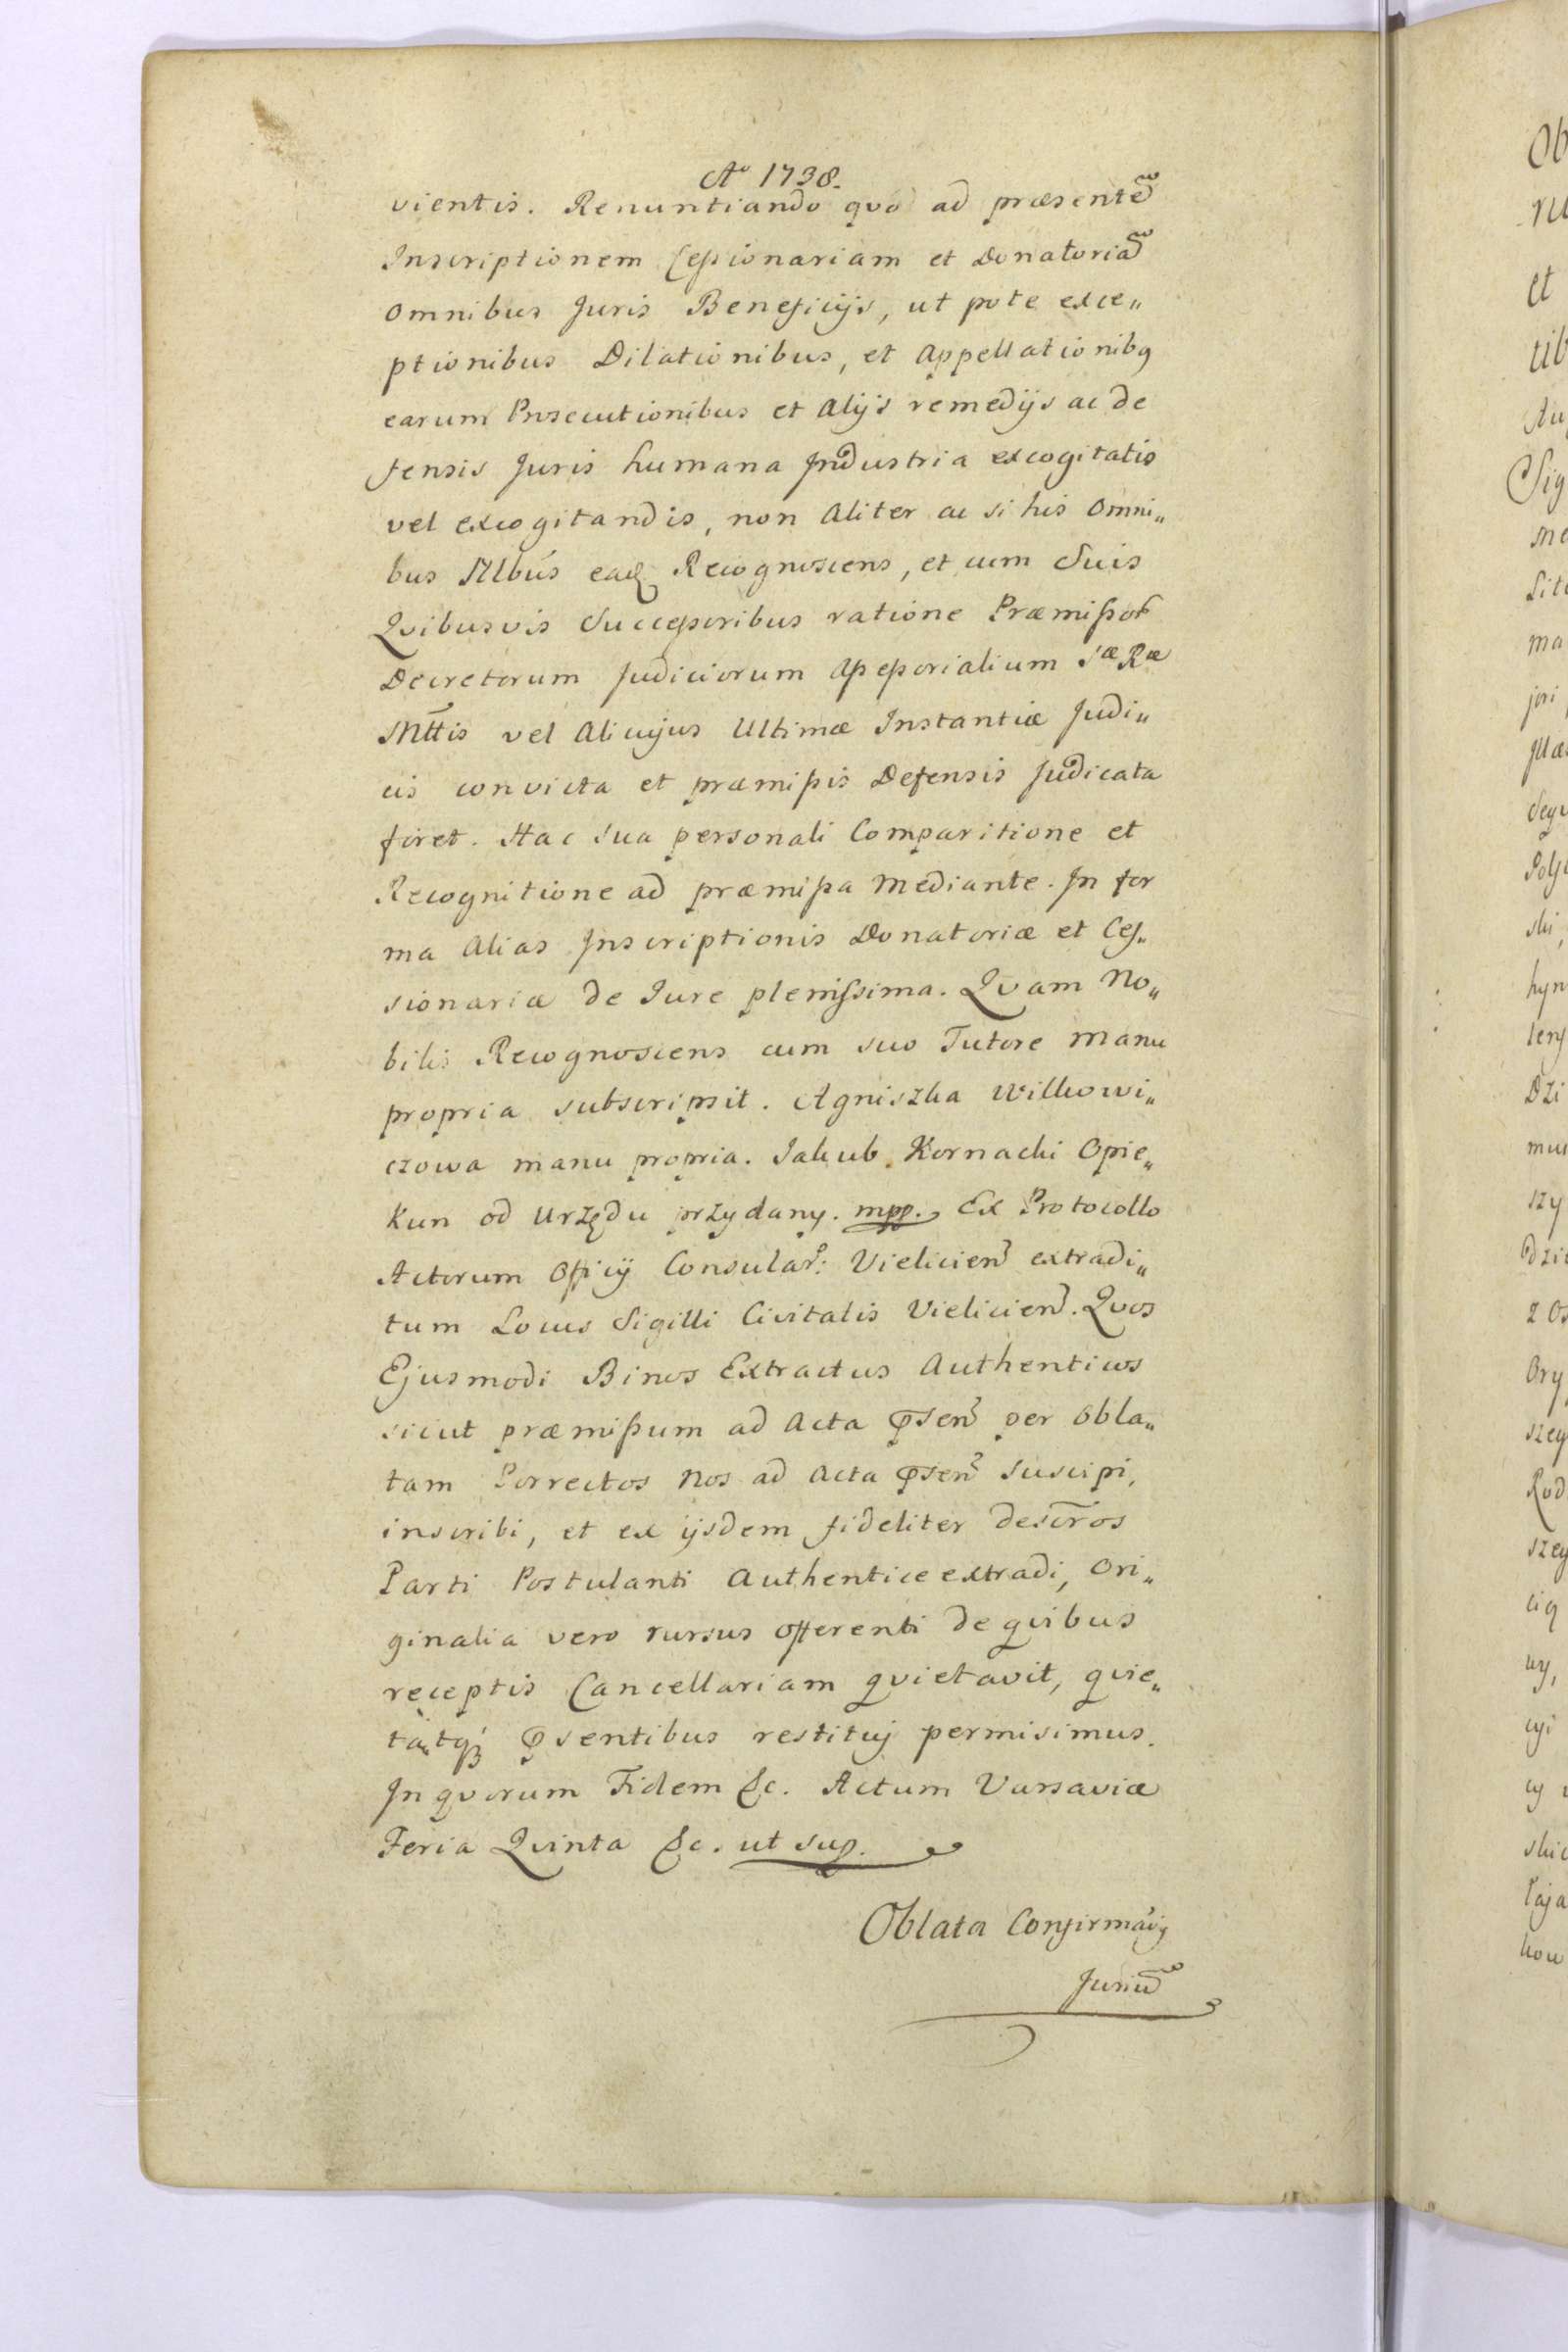 Aº 1738.
vientis. Renuntiando quo ad præsentem
Inscriptionem Cessionariam et Donatoriam
omnibus Juris Beneficijs, ut pote exce„
ptionibus Dilationibus, et Appellationibq
earum Prosecutionibus et Alijs remedijs ac de
fensis Juris humana Industria excogitatis
vel excogitandis, non Aliter ac si his omni„
bus eaq Recognoscens, et cum Suis
Quibusvis Successoribus ratione Præmissor
Decretorum Judiciorum Assessorialium Sæ Ræ
Mttis vel Alicujus Ultimæ Instantiæ Judi„
cis convicta et præmissis Defensis Judicata
foret. Hac sua personali Comparitione et
Recognitione ad præmissa mediante. In for
ma Alias Inscriptionis Donatoriæ et Ces„
sionariæ de Jure plenissima. Quam No„
bilis Recognoscens cum suo Tutore manu
propria subscripsit. Agniszka Wilkowi„
czowa manu propria. Jakub Kornacki Opie„
kun od Urzędu przydany. mpp. Ex Protocollo
Actorum Officij Consular: Vielicien extradi„
tum Locus Sigilli Civitatis Vielicien. Quos
Ejusmodi Binos Extractus Authenticos
sicut præmissum ad Acta psen per obla„
tam Porrectos Nos ad Acta psen suscipi,
inscribi, et ex ijsdem fideliter descros
Parti Postulanti Authentice extradi, ori„
ginalia vero rursus offerenti de quibus
receptis Cancellariam quietavit, quie„
tatq psentibus restituj permisimus.
In quorum Fidem &c. Actum Varsaviæ
Feria Quinta &c. ut sup.
Oblata Confirmaōis
Jurium
Ob
et
tib
Sig
ma
hyn
Dzi
szy
szey
szey